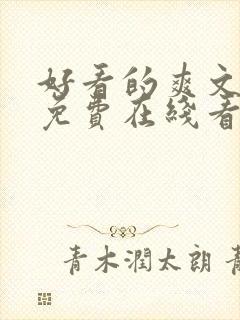 好看的爽文
免費在綫看
青木潤太朗 青